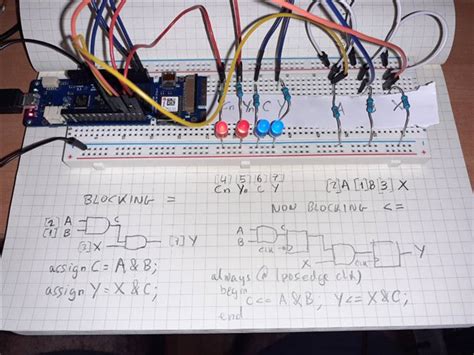 Cn Yn C Y
A X
[4] [5] [6] [7]
Cn Yn C Y
[2]A [1]B [3] X
BLOCKING =
NON BLOCKING <=
[2] A
[1] B
C
[3] X
[7] Y
A
B
C
CLK
X
CLK
Y
assign C = A & B;
assign Y = X & C;
always @ (posedge clk)
begin
C <= A & B, Y <= X & C;
end